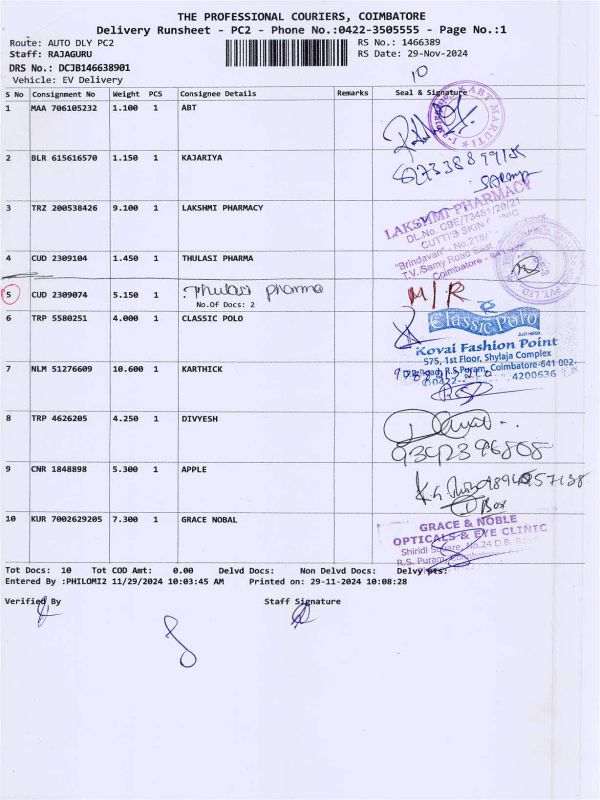 THE PROFESSIONAL COURIERS, COIMBATORE
Delivery Runsheet - PC2 - Phone No.:0422-3505555 - Page No.:1
Route: AUTO DLY PC2
RS No.: 1466389
Staff: RAJAGURU
RS Date: 29-Nov-2024
DRS No.: DCJB146638901
Vehicle: EV Delivery
10
S No Consignment No Weight PCS Consignee Details Remarks Seal & Signature
1 MAA 706105232 1.100 1 ABT
ABT MARUTI
2 BLR 615616570 1.150 1 KAJARIYA
3 TRZ 200538426 9.100 1 LAKSHMI PHARMACY
LAKSHMI PHARMACY
DL.No. CBE/73451/20/21
"Brindavan" No.218/
T.V. Samy Road East
Coimbatore
4 CUD 2309104 1.450 1 THULASI PHARMA
5 CUD 2309074 5.150 1 : Thulasi pharma
No.Of Docs: 2
M/R
6 TRP 5580251 4.000 1 CLASSIC POLO
Classic Polo
Just relax.
Kovai Fashion Point
575, 1st Floor, Shylaja Complex
D.B. Road, R.S.Puram, Coimbatore-641 002.
4200636
7 NLM 51276609 10.600 1 KARTHICK
8 TRP 4626205 4.250 1 DIVYESH
9342396808
9 CNR 1848898 5.300 1 APPLE
D Box
10 KUR 7002629205 7.300 1 GRACE NOBAL
GRACE & NOBLE
OPTICALS & EYE CLINIC
Shiridi Square, No.24 D.B.
R.S. Puram,
Tot Docs: 10 Tot COD Amt: 0.00 Delvd Docs: Non Delvd Docs: Delvy pts:
Entered By :PHILOMI2 11/29/2024 10:03:45 AM Printed on: 29-11-2024 10:08:28
Verified By Staff Signature